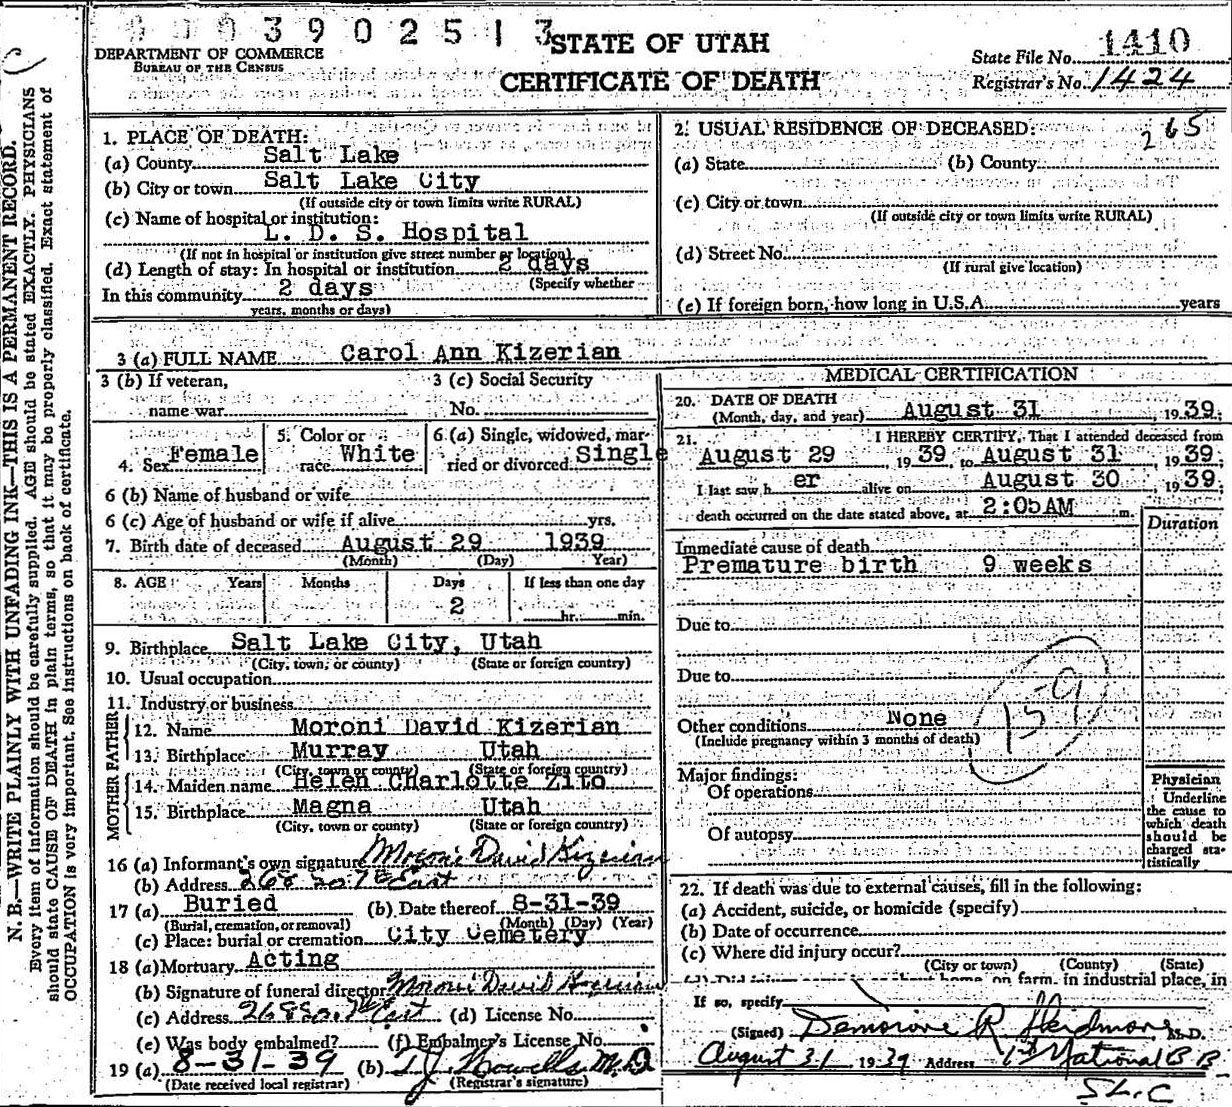 0003902513
DEPARTMENT OF COMMERCE
BUREAU OF THE CENSUS
STATE OF UTAH
CERTIFICATE OF DEATH
State File No. 1410
Registrar's No. 1424
N. B.—WRITE PLAINLY WITH UNFADING INK—THIS IS A PERMANENT RECORD.
Every item of information should be carefully supplied. AGE should be stated EXACTLY. PHYSICIANS
should state CAUSE OF DEATH in plain terms, so that it may be properly classified. Exact statement of
OCCUPATION is very important. See instructions on back of certificate.
1. PLACE OF DEATH:
(a) County Salt Lake
(b) City or town Salt Lake City
(If outside city or town limits write RURAL)
(c) Name of hospital or institution:
L. D. S. Hospital
(If not in hospital or institution give street number or location)
(d) Length of stay: In hospital or institution 2 days
(Specify whether
In this community 2 days
years, months or days)
2. USUAL RESIDENCE OF DECEASED: 265
(a) State (b) County
(c) City or town
(If outside city or town limits write RURAL)
(d) Street No.
(If rural give location)
(e) If foreign born, how long in U.S.A. years
3 (a) FULL NAME Carol Ann Kizerian
3 (b) If veteran,
name war
3 (c) Social Security
No.
4. Sex Female
5. Color or
race White
6 (a) Single, widowed, mar-
ried or divorced Single
6 (b) Name of husband or wife
6 (c) Age of husband or wife if alive yrs.
7. Birth date of deceased August 29 1939
(Month) (Day) Year)
8. AGE Years Months Days If less than one day
2 hr. min.
9. Birthplace Salt Lake City, Utah
(City, town, or county) (State or foreign country)
10. Usual occupation
11. Industry or business
FATHER
12. Name Moroni David Kizerian
13. Birthplace Murray Utah
(City, town or county) (State or foreign country)
MOTHER
14. Maiden name Helen Charlotte Zito
15. Birthplace Magna Utah
(City, town or county) (State or foreign country)
16 (a) Informant's own signature Moroni David Kizerian
(b) Address 268 So. 7th East
17 (a) Buried (b) Date thereof 8-31-39
(Burial, cremation, or removal) (Month) (Day) (Year)
(c) Place: burial or cremation City Cemetery
18 (a) Mortuary Acting
(b) Signature of funeral director Moroni David Kizerian
(c) Address 268 So. 7th East (d) License No.
(e) Was body embalmed? (f) Embalmer's License No.
19 (a) 8-31-39 (b) T J Howells M.D
(Date received local registrar) (Registrar's signature)
MEDICAL CERTIFICATION
20. DATE OF DEATH
(Month, day, and year) August 31 1939.
21. I HEREBY CERTIFY, That I attended deceased from
August 29, 1939 to August 31, 1939.
I last saw her alive on August 30, 1939.
death occurred on the date stated above, at 2:05AM m.
Duration
Immediate cause of death
Premature birth 9 weeks
Due to
Due to
159
Other conditions None
(Include pregnancy within 3 months of death)
Major findings:
Of operations
Of autopsy
Physician
Underline
the cause to
which death
should be
charged sta-
tistically
22. If death was due to external causes, fill in the following:
(a) Accident, suicide, or homicide (specify)
(b) Date of occurrence
(c) Where did injury occur?
(City or town) (County) (State)
home, on farm, in industrial place, in
If so, specify
(Signed) R M.D.
August 31 1939 Address 1st National B B
SL.C